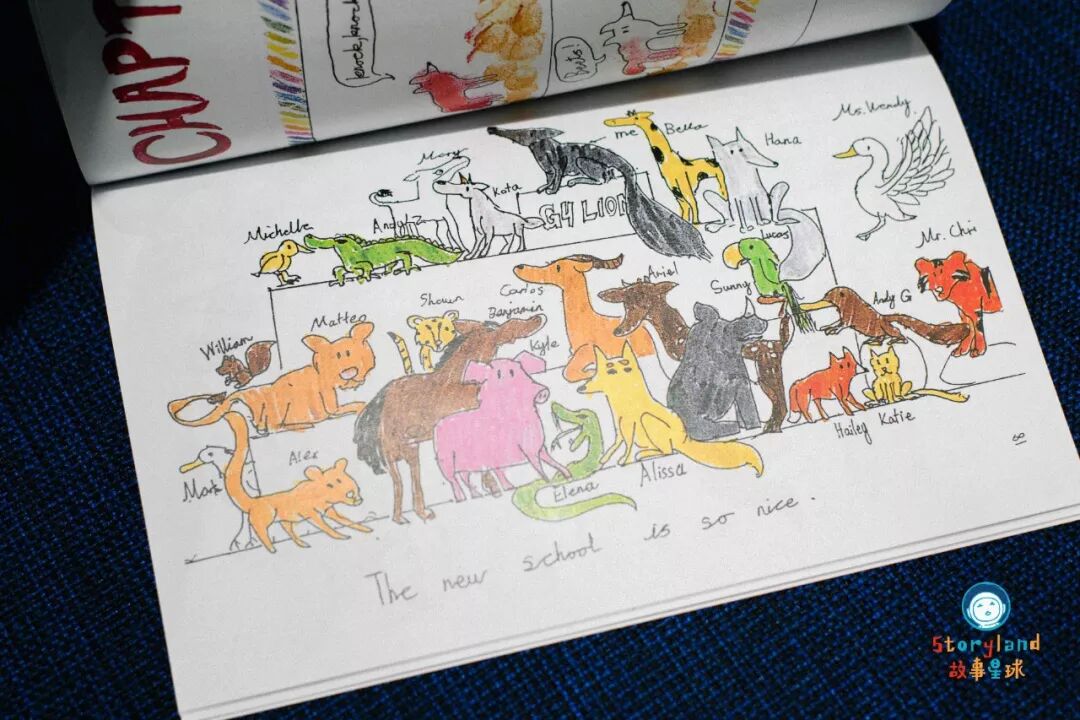 CHAPT
knock, knock
Buts!
Ms. Wendy
me
Bella
Hana
Mory
Kota
G4 LION
Andy Z
Michelle
Lucas
Mr. Chri
Ariel
Sunny
Carlos
Andy G
Shawn
Benjamin
Matteo
Kyle
William
Hailey
Katie
Alex
Mark
Elena
Alissa
8
The new school is so nice.
Storyland
故事星球